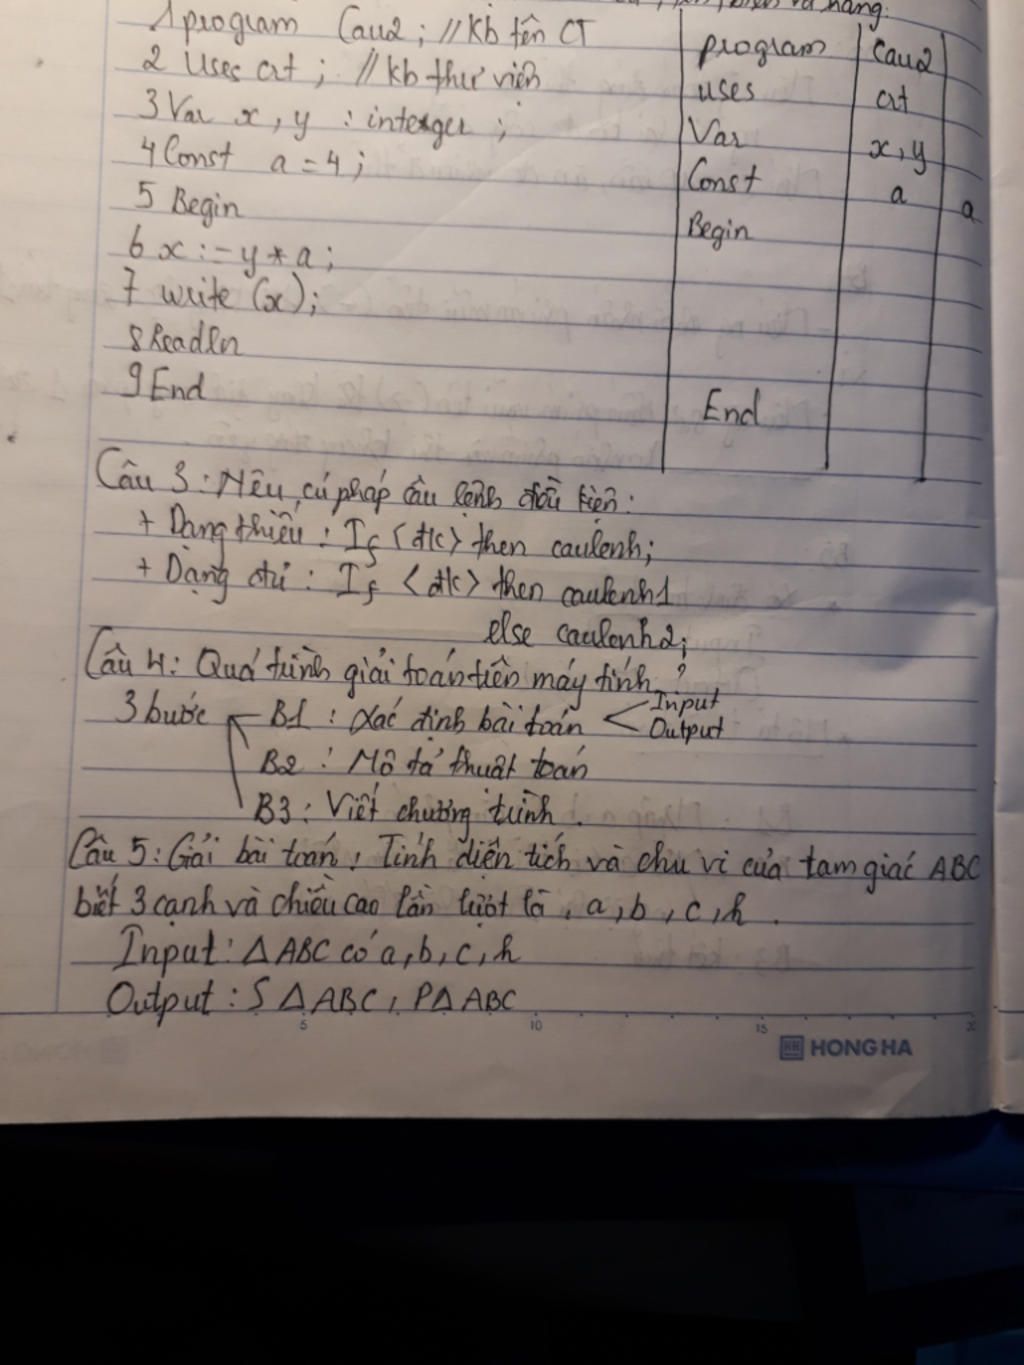 biến và hằng.
1 program Cau2; //kb tên CT
2 Uses crt; //kb thư viện
3 Var x, y : interger ;
4 Const a = 4 ;
5 Begin
6 x := y * a ;
7 write (x);
8 Readln
9 End
program Cau2
uses crt
Var x, y
Const a a
Begin
End
Câu 3 : Nêu cú pháp câu lệnh điều kiện :
+ Dạng thiếu : If <đk> then caulenh;
+ Dạng đủ : If <đk> then caulenh1
else caulenh2;
Câu 4 : Quá trình giải toán trên máy tính ?
3 bước B1 : Xác định bài toán Input
Output
B2 : Mô tả thuật toán
B3 : Viết chương trình .
Câu 5 : Giải bài toán, Tính diện tích và chu vi của tam giác ABC
biết 3 cạnh và chiều cao lần lượt là , a, b, c, h .
Input : Δ ABC có a, b, c, h
Output : S Δ ABC , P Δ ABC
5 10 15 20
HONG HA